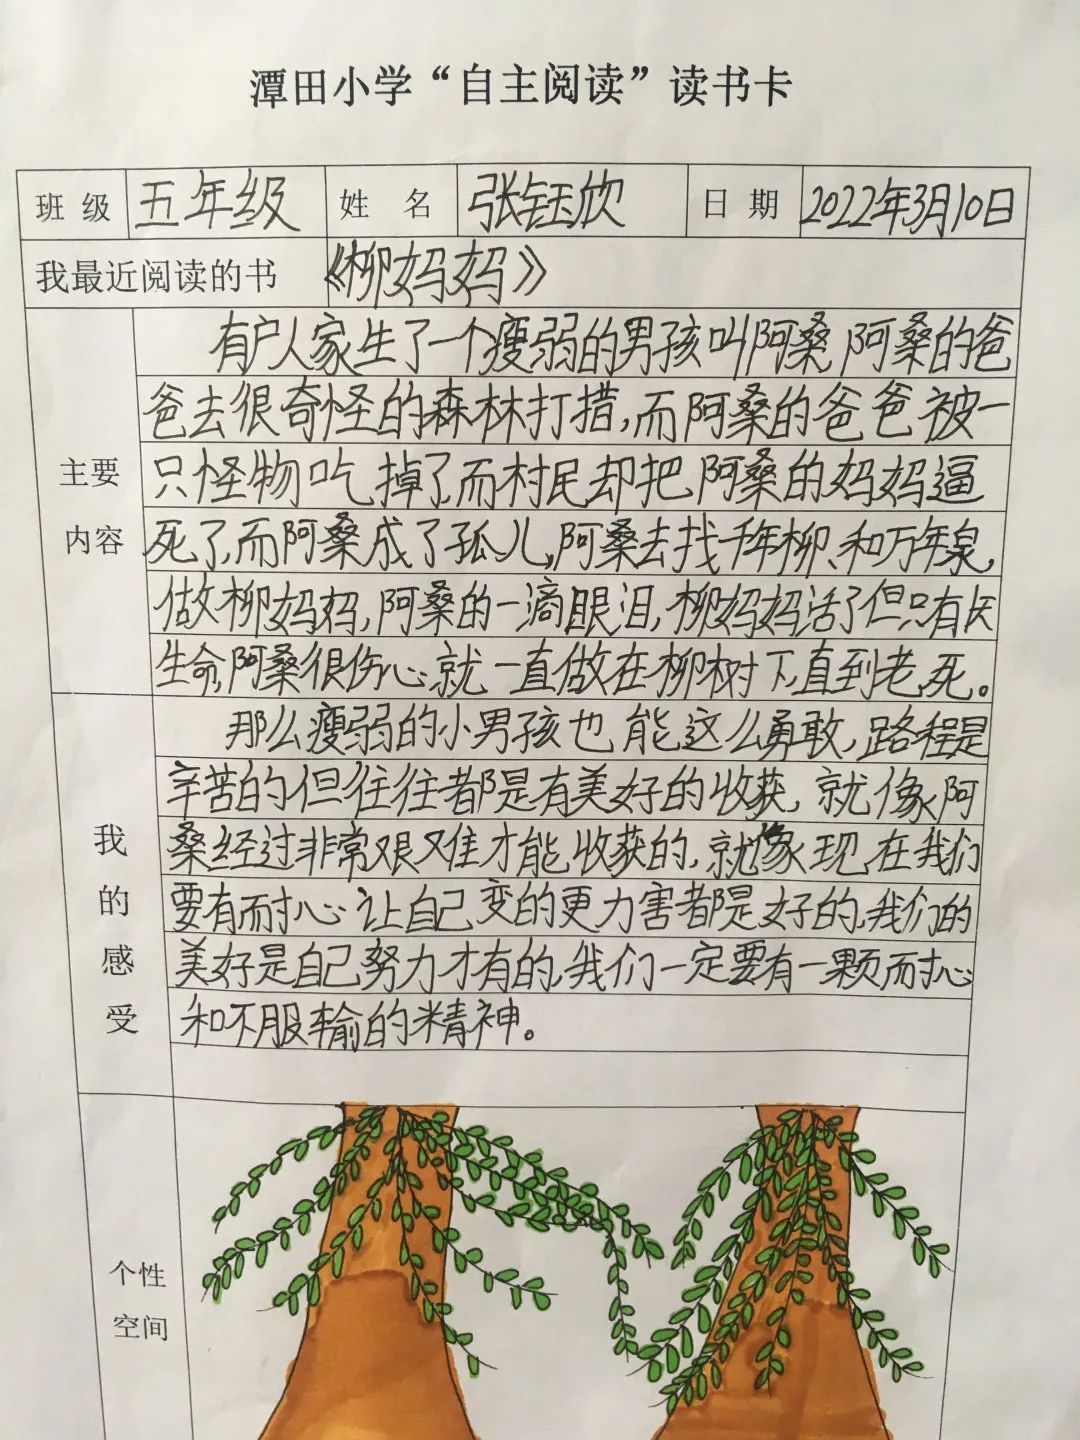 潭田小学“自主阅读”读书卡
班 级 五年级 姓 名 张钰欣 日 期 2022年3月10日
我最近阅读的书 《柳妈妈》
主要
内容
有户人家生了一个瘦弱的男孩叫阿桑,阿桑的爸
爸去很奇怪的森林打措,而阿桑的爸爸被一
只怪物吃掉了,而村民却把阿桑的妈妈逼
死了,而阿桑成了孤儿,阿桑去找千年柳、和万年泉,
做柳妈妈,阿桑的一滴眼泪,柳妈妈活了但只有
生命,阿桑很伤心就一直做在柳树下,直到老死。
我
的
感
受
那么瘦弱的小男孩也能这么勇敢,路程是
辛苦的但往往都是有美好的收获,就像阿
桑经过非常艰难才能收获的,就像现在我们
要有耐心让自己变的更力害都是好的,我们的
美好是自己努力才有的,我们一定要有一颗耐心
和不服输的精神。
个性
空间